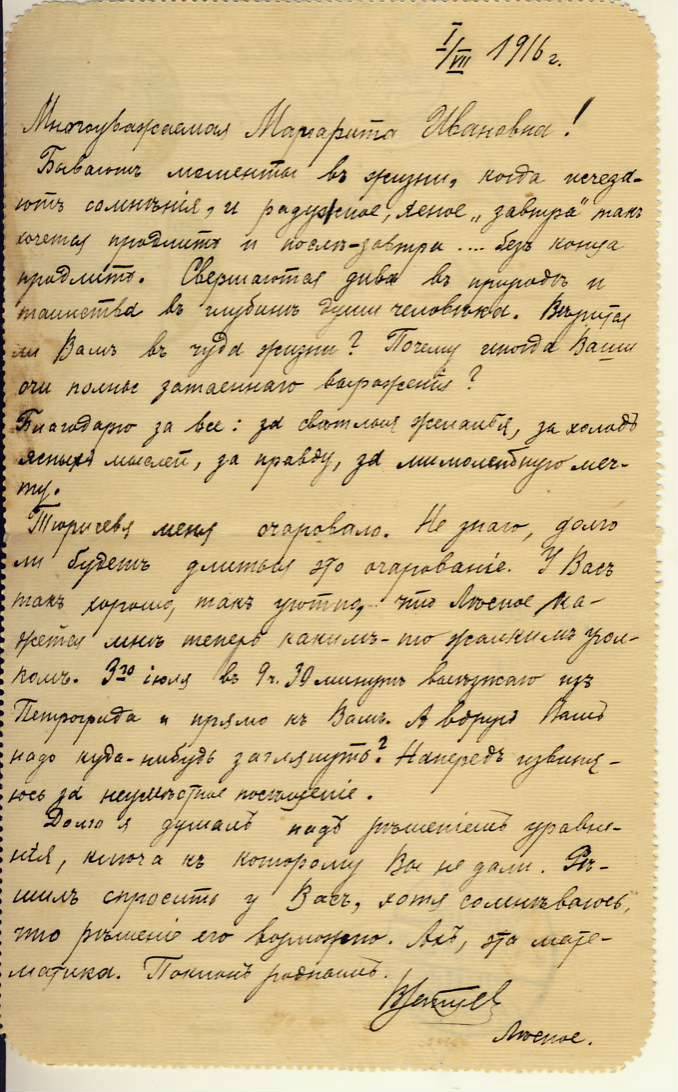 I/VII 1916 г.
Многоуважаемая Маргарита Ивановна!
Бываютъ моменты въ жизни, когда исчеза-
ютъ сомнѣнія, и радужное, ясное „завтра" такъ
хочется продлить и послѣ-завтра .... безъ конца
продлить. Свершаются дива въ природѣ и
таинства въ глубинѣ души человѣка. Вѣрится
ли Вамъ въ чуда жизни? Почему иногда Ваши
очи полны затаеннаго выраженія?
Благодарю за все: за свѣтлыя желанія, за холодъ
ясныхъ мыслей, за правду, за мимолетную меч-
ту.
меня очаровало. Не знаю, долго
ли будетъ длиться это очарованіе. У Васъ
такъ хорошо, такъ уютно, что Лѣсное ка-
жется мнѣ теперь какимъ-то жалкимъ угол-
комъ. 3го іюля въ 9 ч. 39 минутъ выѣзжаю изъ
Петрограда и прямо къ Вамъ. А вдругъ Вамъ
надо куда-нибудь заглянуть? Напередъ извиня-
юсь за неумѣстное посѣщеніе.
Долго я думалъ надъ рѣшеніемъ уравне-
нія, ключа къ которому Вы не дали. Рѣ-
шилъ спросить у Васъ, хотя сомнѣваюсь,
что рѣшеніе его возможно. Ахъ, эта мате-
матика. Поклонъ роднымъ.
Лѣсное.